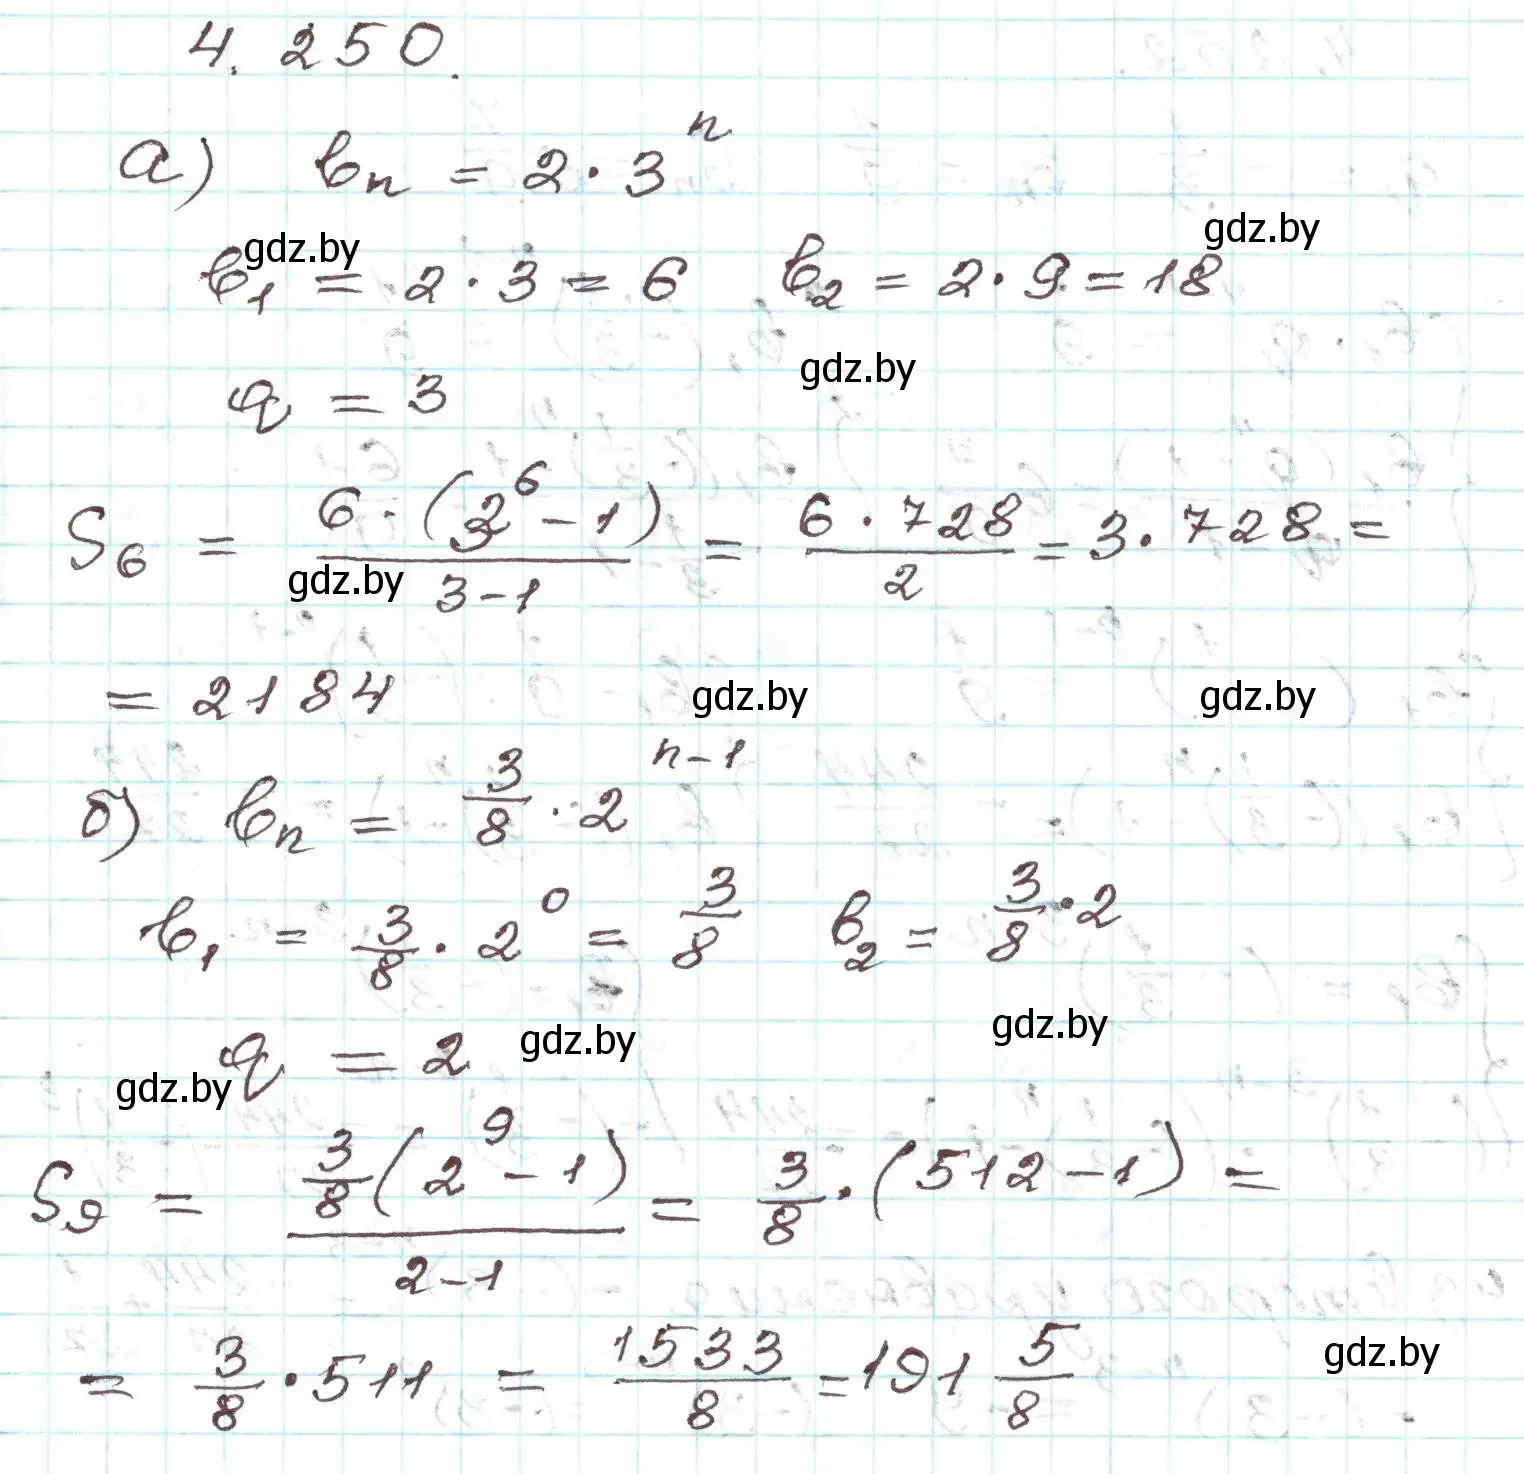 4. 250.
а) bₙ = 2 · 3ⁿ
gdz.by gdz.by
b₁ = 2 · 3 = 6 b₂ = 2 · 9 = 18
gdz.by
q = 3
S₆ = 6 · (3⁶ - 1) / (3 - 1) = 6 · 728 / 2 = 3 · 728 =
gdz.by
= 2184 gdz.by gdz.by
б) bₙ = 3/8 · 2ⁿ⁻¹
b₁ = 3/8 · 2⁰ = 3/8 b₂ = 3/8 · 2
gdz.by
q = 2 gdz.by
gdz.by
S₉ = 3/8 (2⁹ - 1) / (2 - 1) = 3/8 · (512 - 1) =
= 3/8 · 511 = 1533/8 = 191 5/8
gdz.by